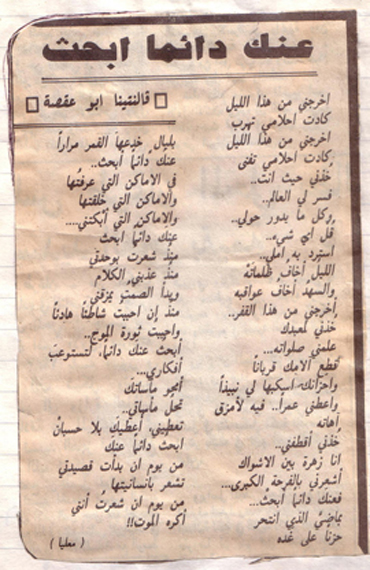 عنك دائما ابحث
ڤالنتينا ابو عقصة
اخرجني من هذا الليل
كادت احلامي تهرب
اخرجني من هذا الليل
كادت احلامي تفنى
خذني حيث انت..
فسر لي العالم..
وكل ما يدور حولي..
قل اي شيء..
استرد به املي..
الليل أخاف ظلماته
والسهد أخاف عواقبه
أخرجني من هذا القفر..
خذني لمعبدك
علمني صلواته...
قطع آلامك قرباناً
واحزانك اسكبها لي نبيذاً
واعطني عمراً.. فيه لأمزق
آهاته
خذني أقطفني..
انا زهرة بين الاشواك
أشعرني بالفرحة الكبرى...
فعنك دائماً أبحث...
بماضيَّ الذي انتحر
حزناً على غده
بليال خدعها القمر مراراً
عنك دائماً أبحث..
في الاماكن التي عرفتها
والاماكن التي خلقتها
والاماكن التي أبكتني....
عنك دائماً ابحث
منذ شعرت بوحدتي
منذ عذبني الكلام
وبدأ الصمت يمزقني
منذ إن احببت شاطئاً هادئاً
واحببت ثورة الموج..
أبحث عنك دائماً، لتستوعب
أفكاري...
أمحو مأساتك
تحل مأساتي..
تعطيني، أعطيك بلا حسبان
ابحث دائماً عنك
من يوم ان بدأت قصيدتي
تشعر بانسانيتها
من يوم ان شعرت أنني
أكره الموت!!
( معليا )